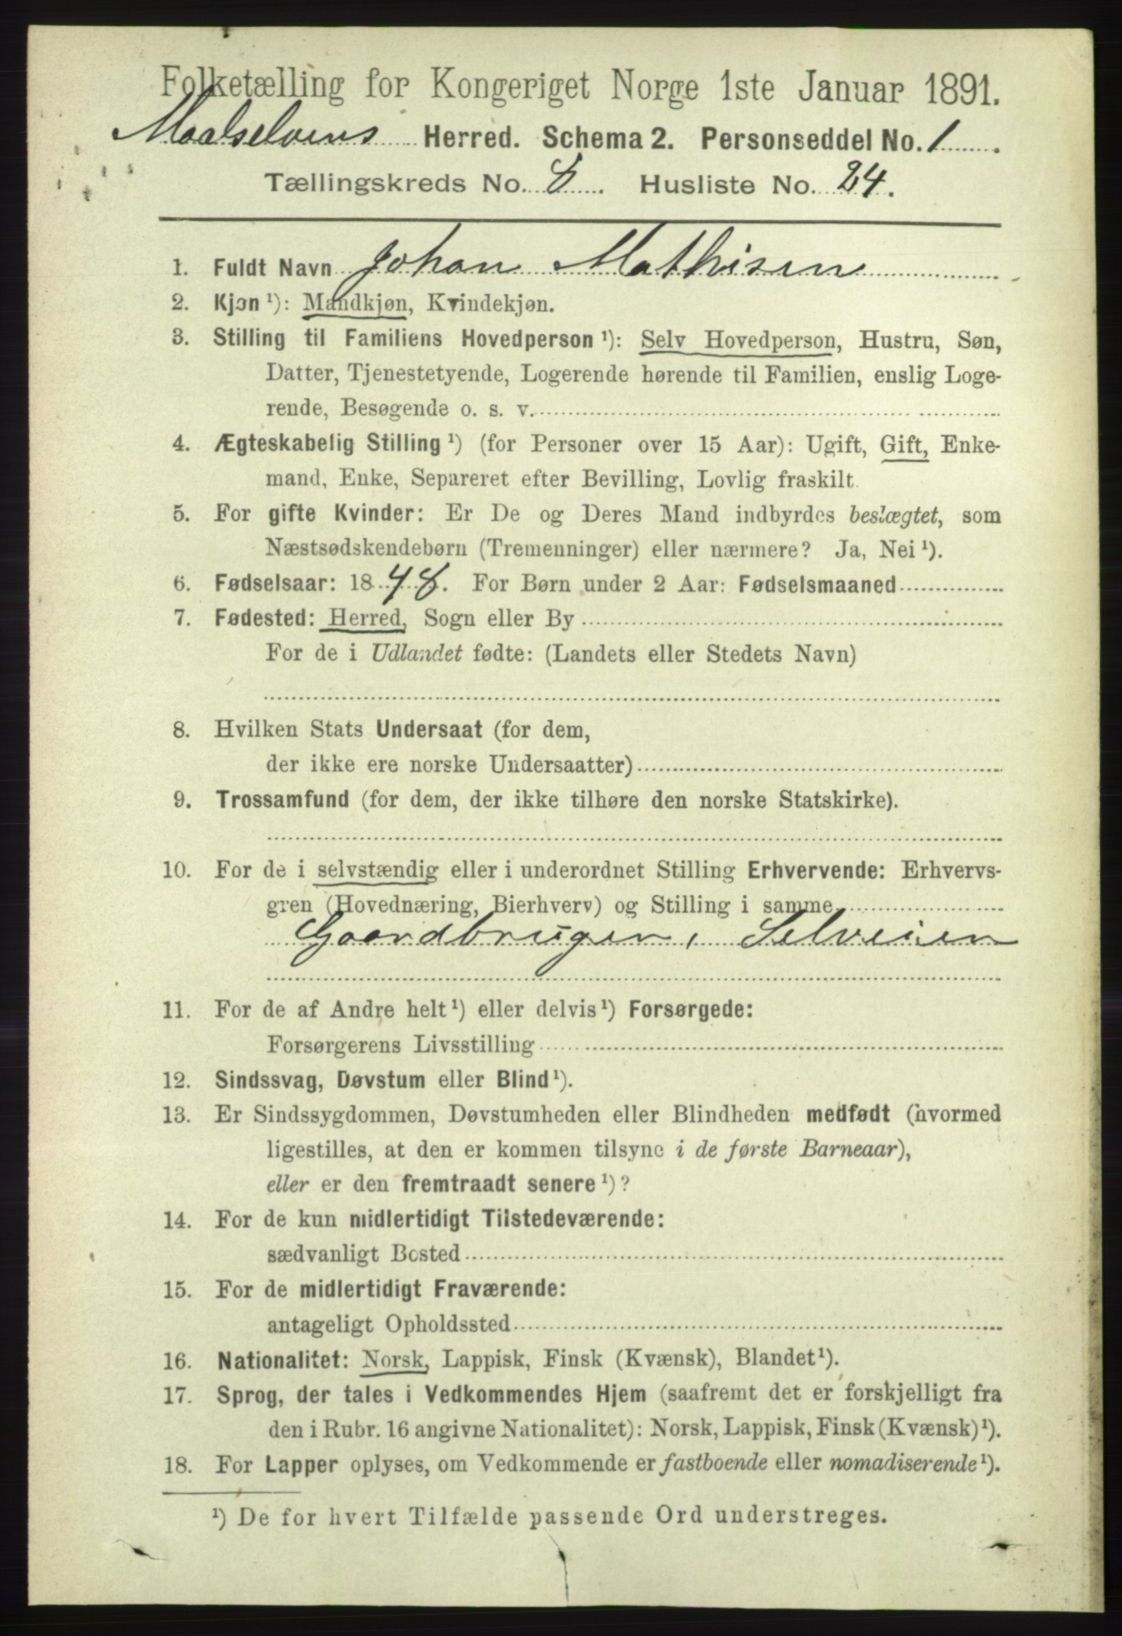 Folketælling for Kongeriget Norge 1ste Januar 1891.
Maalselvens Herred. Schema 2. Personseddel No. 1.
Tællingskreds No. 8. Husliste No. 24.
1. Fuldt Navn Johan Mathisen
2. Kjøn ¹): Mandkjøn, Kvindekjøn.
3. Stilling til Familiens Hovedperson ¹): Selv Hovedperson, Hustru, Søn,
Datter, Tjenestetyende, Logerende hørende til Familien, enslig Loge-
rende, Besøgende o. s. v.
4. Ægteskabelig Stilling ¹) (for Personer over 15 Aar): Ugift, Gift, Enke-
mand, Enke, Separeret efter Bevilling, Lovlig fraskilt.
5. For gifte Kvinder: Er De og Deres Mand indbyrdes beslægtet, som
Næstsødskendebørn (Tremenninger) eller nærmere? Ja, Nei ¹).
6. Fødselsaar: 1848. For Børn under 2 Aar: Fødselsmaaned
7. Fødested: Herred, Sogn eller By
For de i Udlandet fødte: (Landets eller Stedets Navn)
8. Hvilken Stats Undersaat (for dem,
der ikke ere norske Undersaatter)
9. Trossamfund (for dem, der ikke tilhøre den norske Statskirke).
10. For de i selvstændig eller i underordnet Stilling Erhvervende: Erhvervs-
gren (Hovednæring, Bierhverv) og Stilling i samme
Gaardbruger, Selveier
11. For de af Andre helt ¹) eller delvis ¹) Forsørgede:
Forsørgerens Livsstilling
12. Sindssvag, Døvstum eller Blind ¹).
13. Er Sindssygdommen, Døvstumheden eller Blindheden medfødt (hvormed
ligestilles, at den er kommen tilsyne i de første Barneaar),
eller er den fremtraadt senere ¹)?
14. For de kun midlertidigt Tilstedeværende:
sædvanligt Bosted
15. For de midlertidigt Fraværende:
antageligt Opholdssted
16. Nationalitet: Norsk, Lappisk, Finsk (Kvænsk), Blandet ¹).
17. Sprog, der tales i Vedkommendes Hjem (saafremt det er forskjelligt fra
den i Rubr. 16 angivne Nationalitet): Norsk, Lappisk, Finsk (Kvænsk) ¹).
18. For Lapper oplyses, om Vedkommende er fastboende eller nomadiserende ¹).
¹) De for hvert Tilfælde passende Ord understreges.